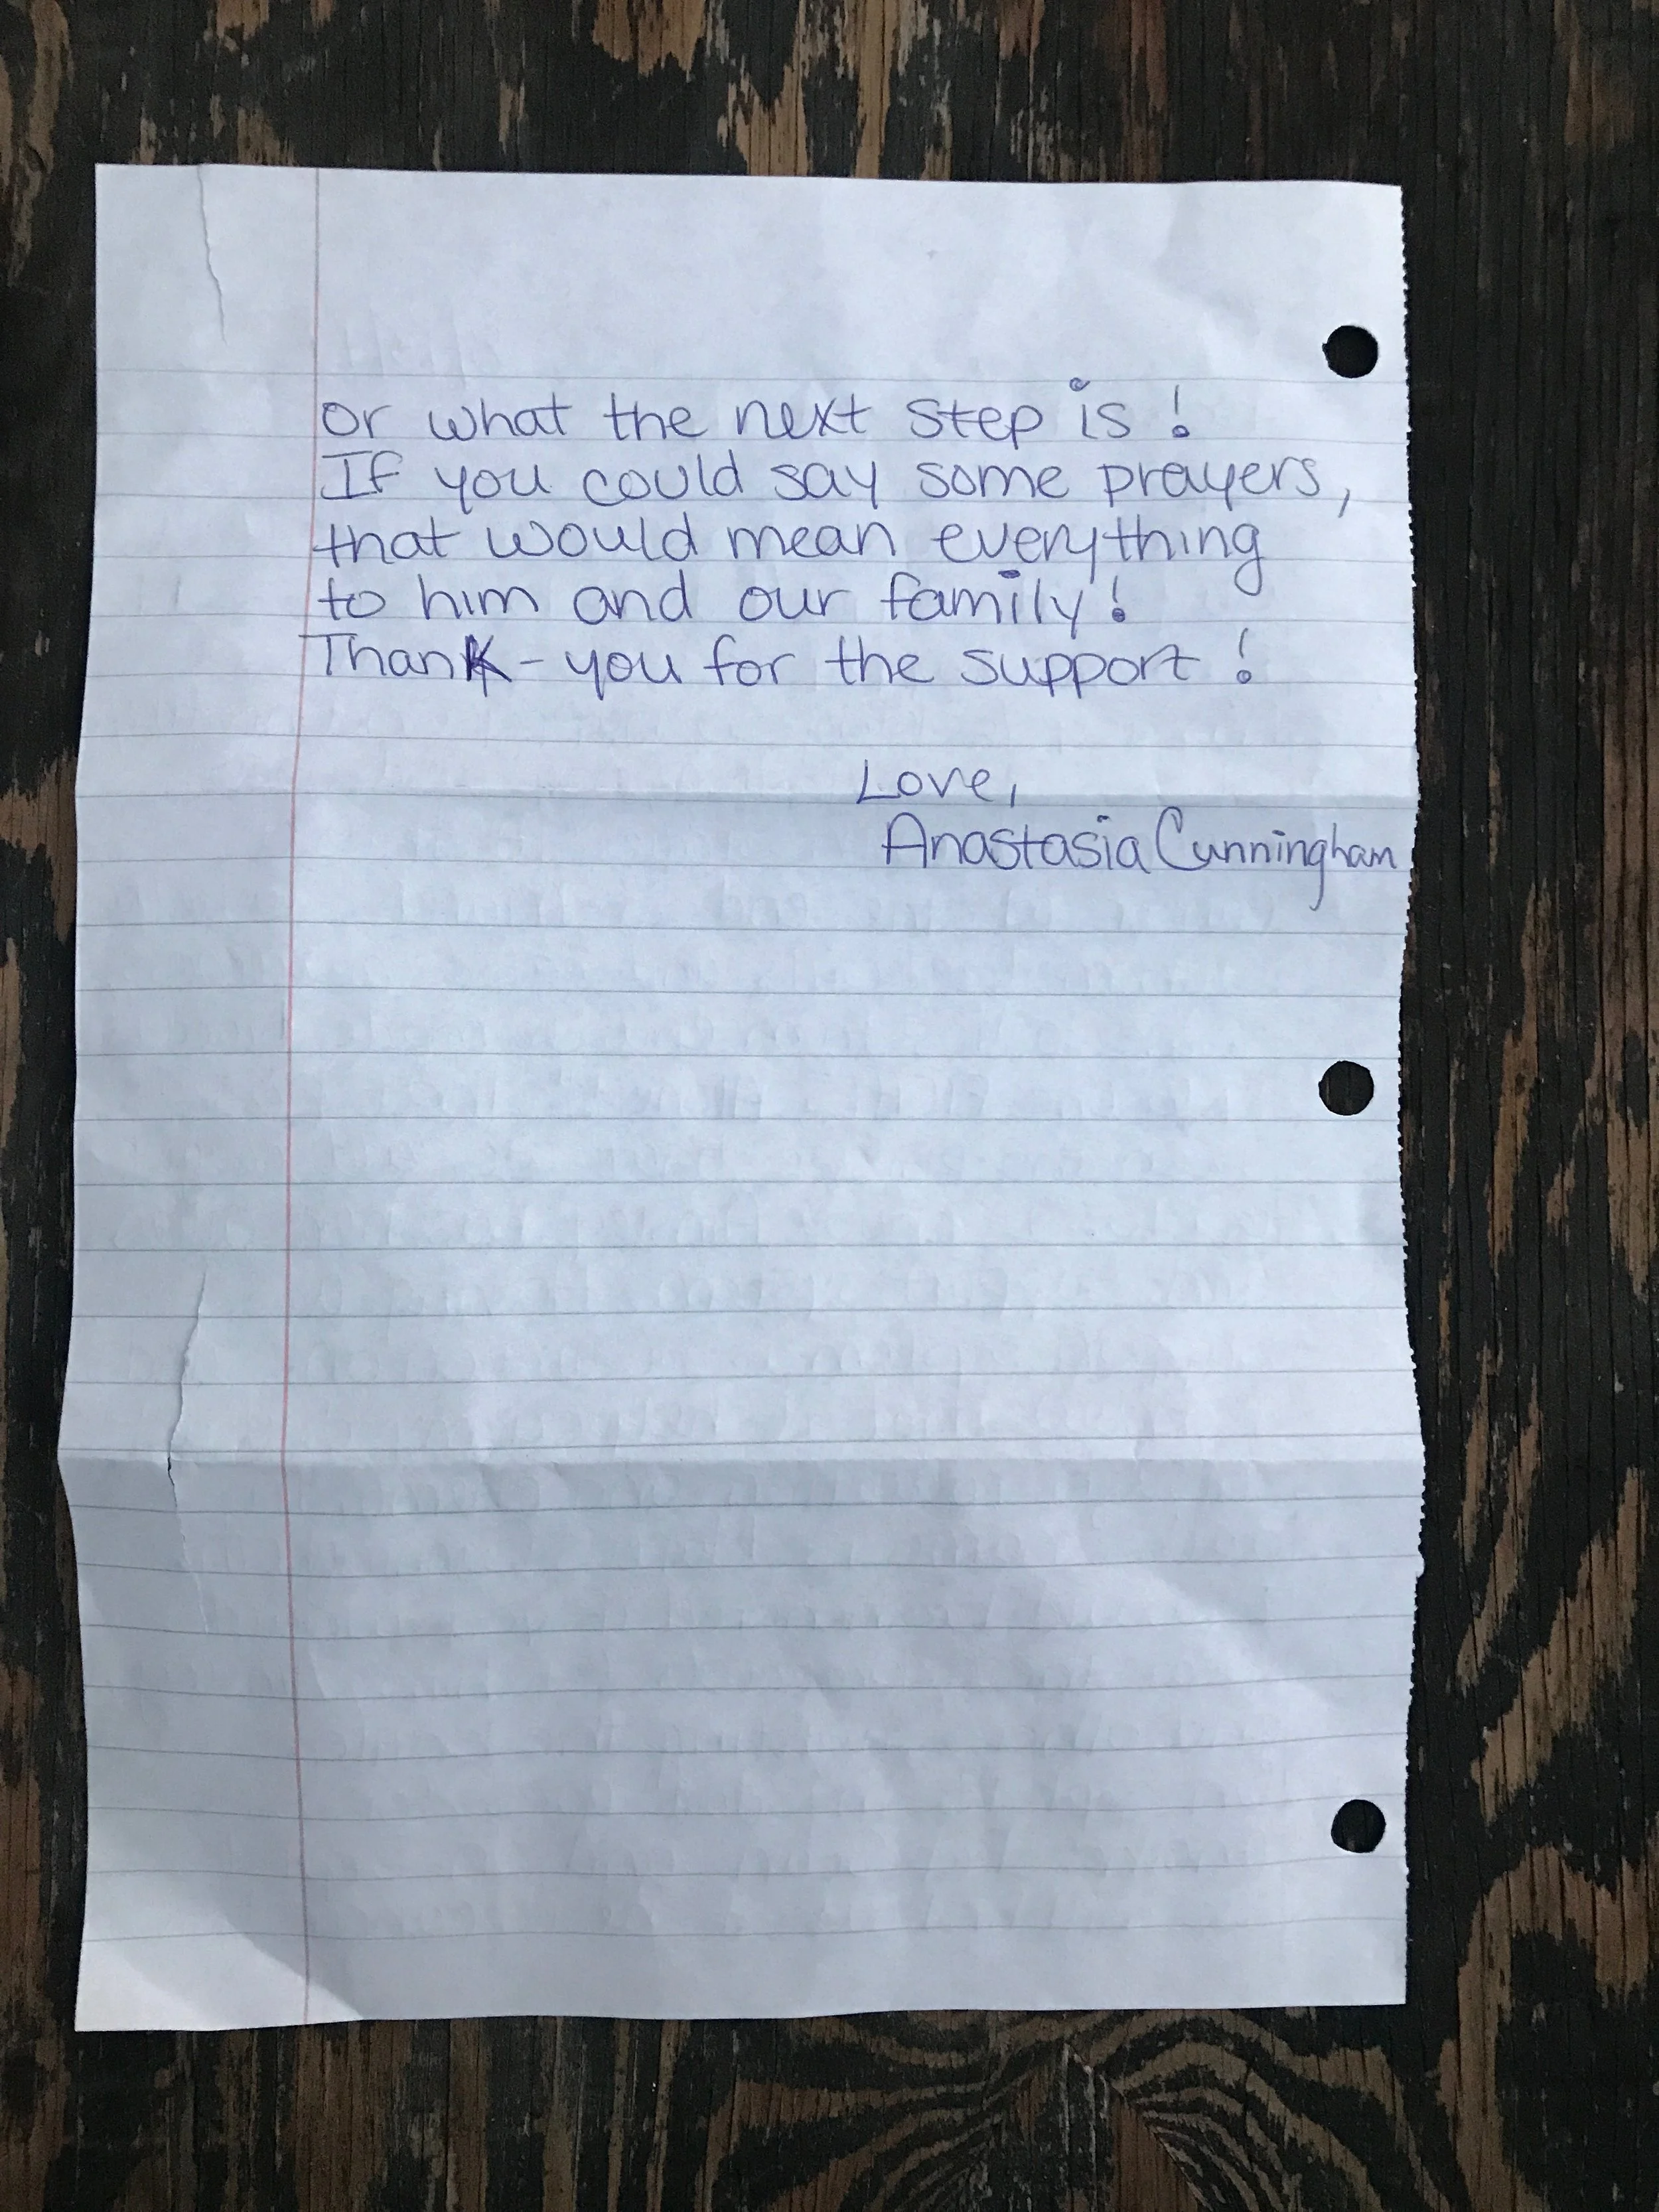 or what the next step is!
If you could say some prayers,
that would mean everything
to him and our family!
Thank-you for the support!
Love,
Anastasia Cunningham